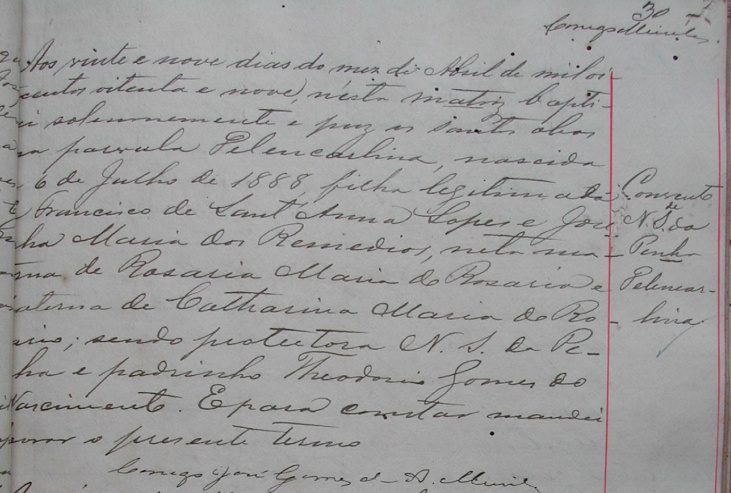 30
Conego Meirelles.
Aos vinte e nove dias do mez de Abril de miloi-
centos oitenta e nove, nesta matriz bapti-
ei solemnemente e puz os santos oleos
a parvula Pelencarlina, nascida
6 de Julho de 1888 filha legitima de
Francisco de Sant'Anna Lopes e José-
nha Maria dos Remedios, neta ma-
rna de Rosaria Maria do Rosario e
aterna de Catharina Maria do Ro-
ario; sendo protectora N. S. da Pe-
nha e padrinho Theodorio Gomes do
Nascimento. E para constar mandei
avrar o presente termo
Conego José Gomes d
Convento
de
N. S. da
Penha
Pelencar-
lina